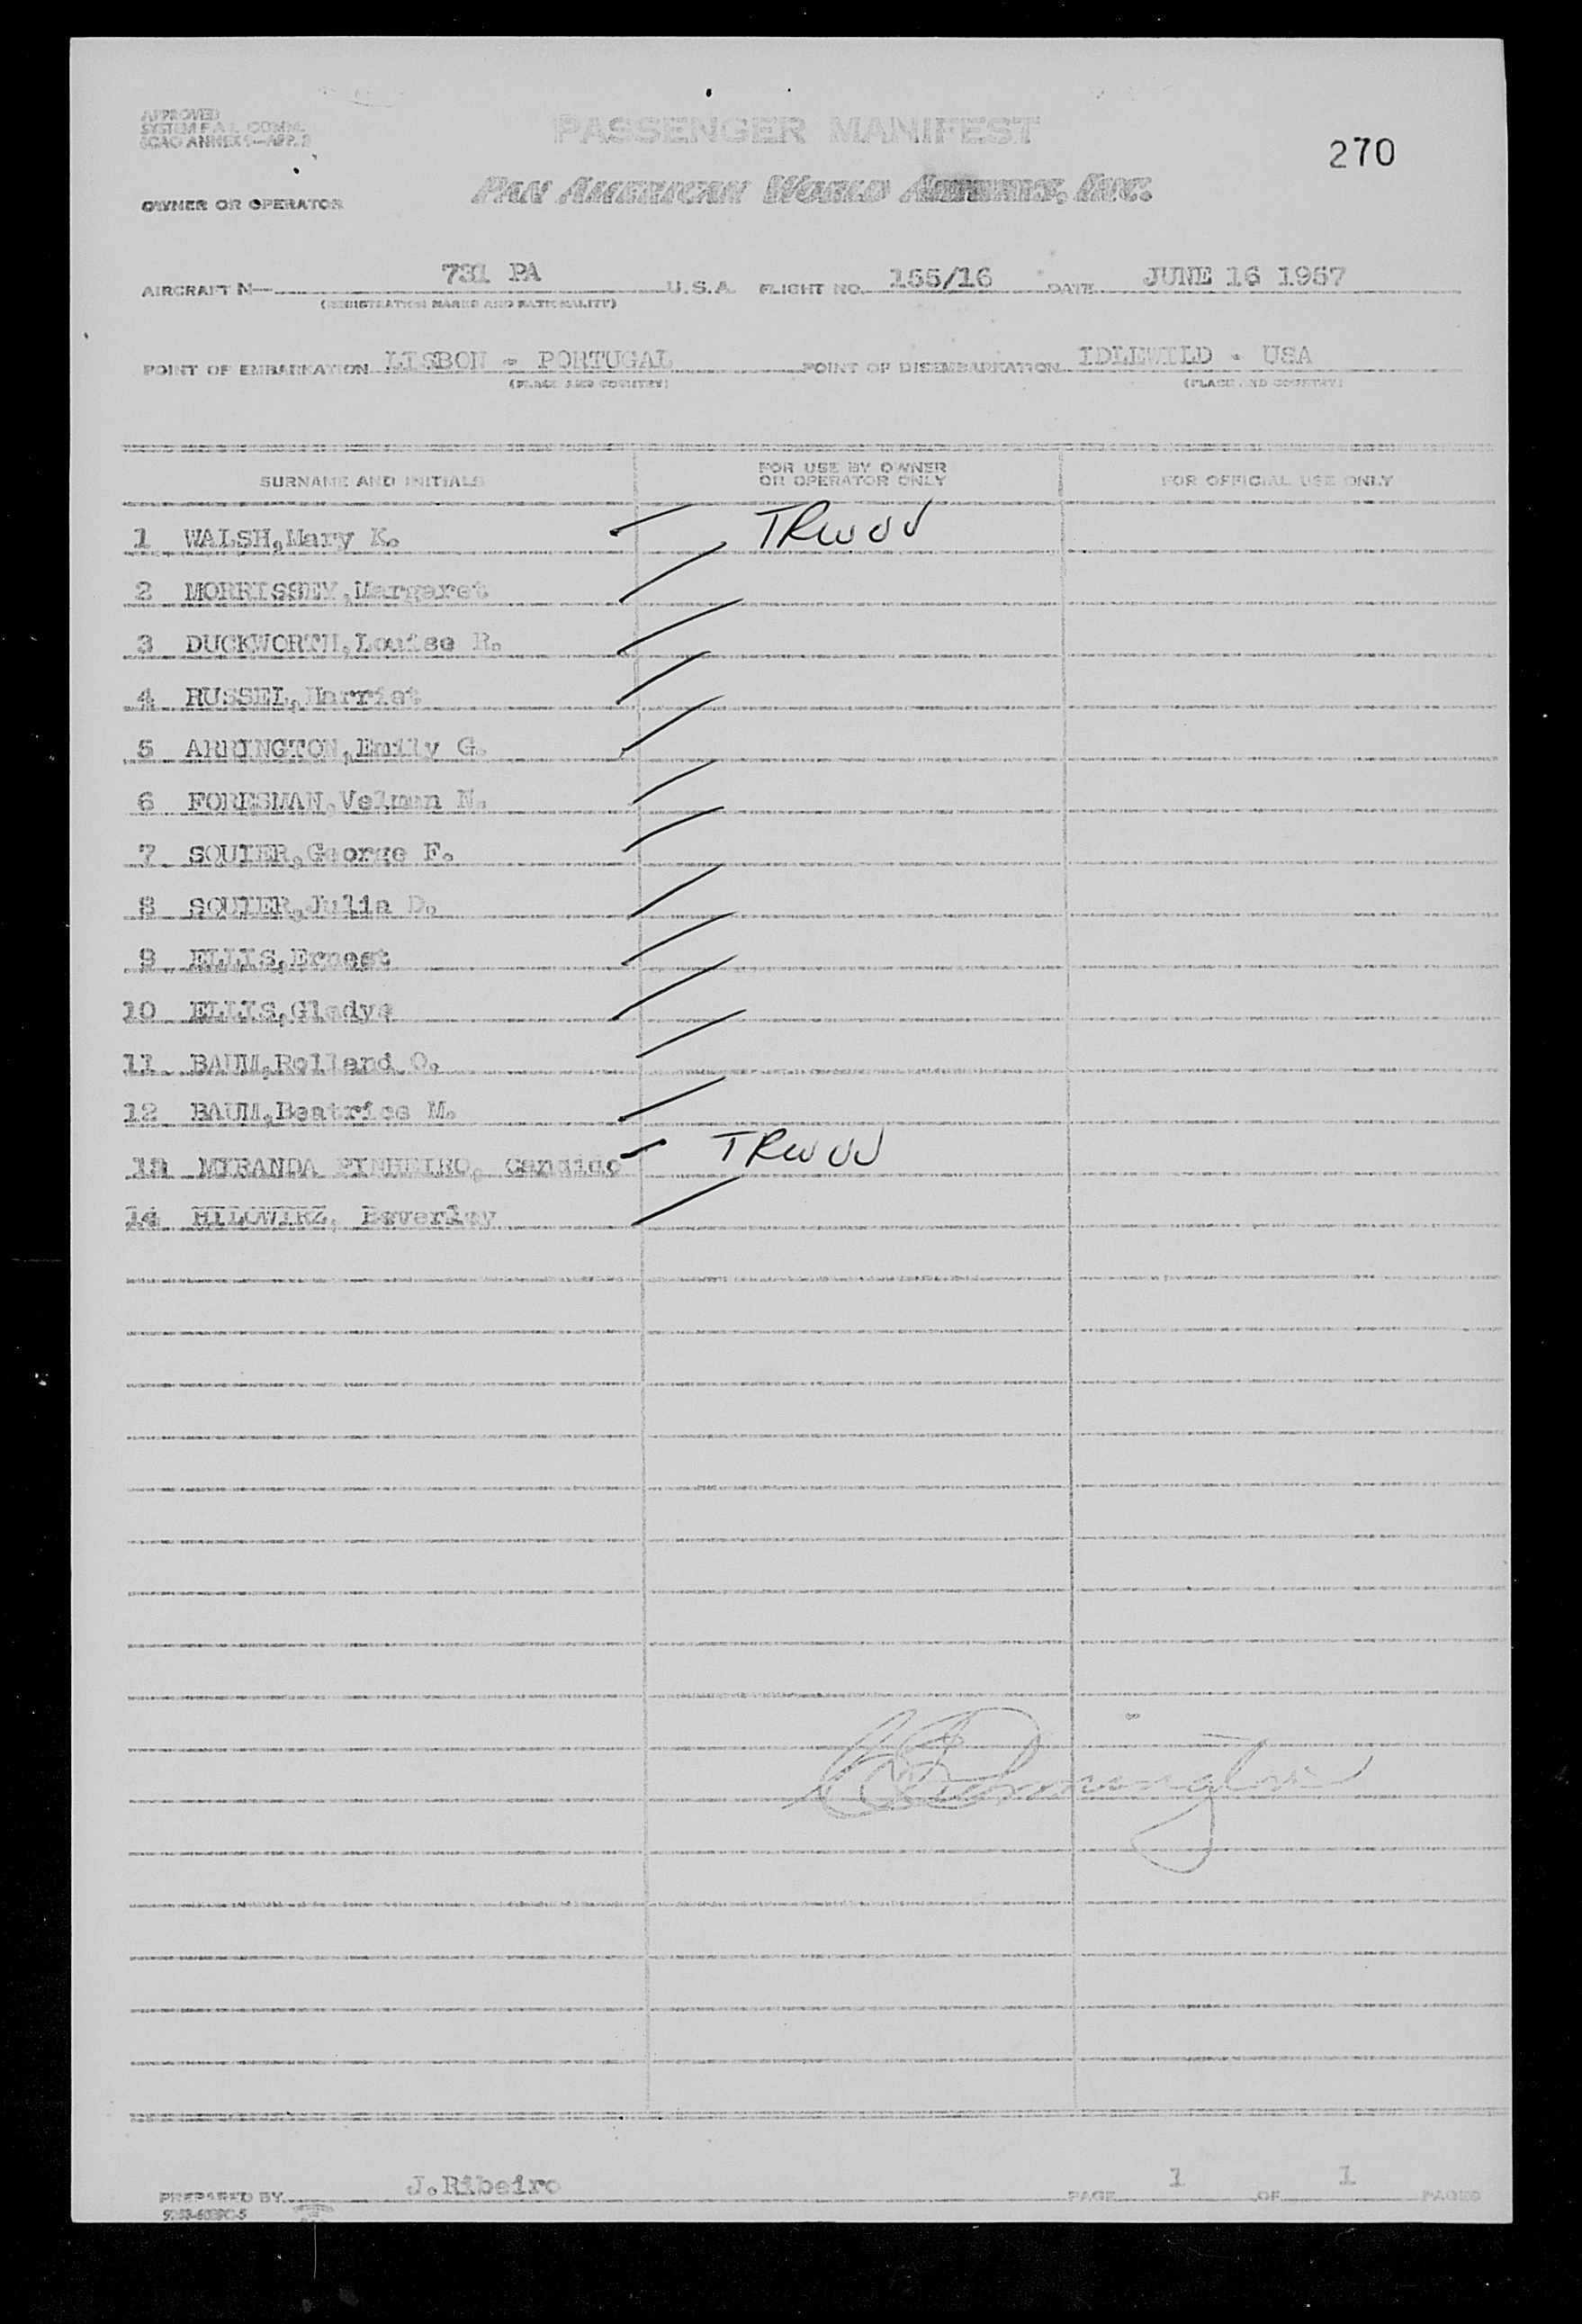 APPROVED
SYSTEM F.A.L. COMM.
ICAO ANNEX 9—APP. 2
PASSENGER MANIFEST
270
OWNER OR OPERATOR
PAN AMERICAN WORLD AIRWAYS, INC.
AIRCRAFT N— 731 PA U.S.A. FLIGHT NO. 155/16 DATE JUNE 16 1957
(REGISTRATION MARKS AND NATIONALITY)
POINT OF EMBARKATION LISBON - PORTUGAL POINT OF DISEMBARKATION IDLEWILD - USA
(PLACE AND COUNTRY) (PLACE AND COUNTRY)
SURNAME AND INITIALS FOR USE BY OWNER OR OPERATOR ONLY FOR OFFICIAL USE ONLY
1 WALSH,Mary K. TRWOV
2 MORRISSEY,Margaret
3 DUCKWORTH,Louise R.
4 RUSSEL,Harriet
5 ARRINGTON,Emily G.
6 FORESMAN,Velman N.
7 SQUIER,George F.
8 SQUIER,Julia D.
9 ELLIS,Ernest
10 ELLIS,Gladys
11 BAUM,Rolland O.
12 BAUM,Beatrice M.
13 MIRANDA PINHEIRO, Candido TRWOV
14 HILOWIRZ, Beverley
PREPARED BY J.Ribeiro PAGE 1 OF 1 PAGES